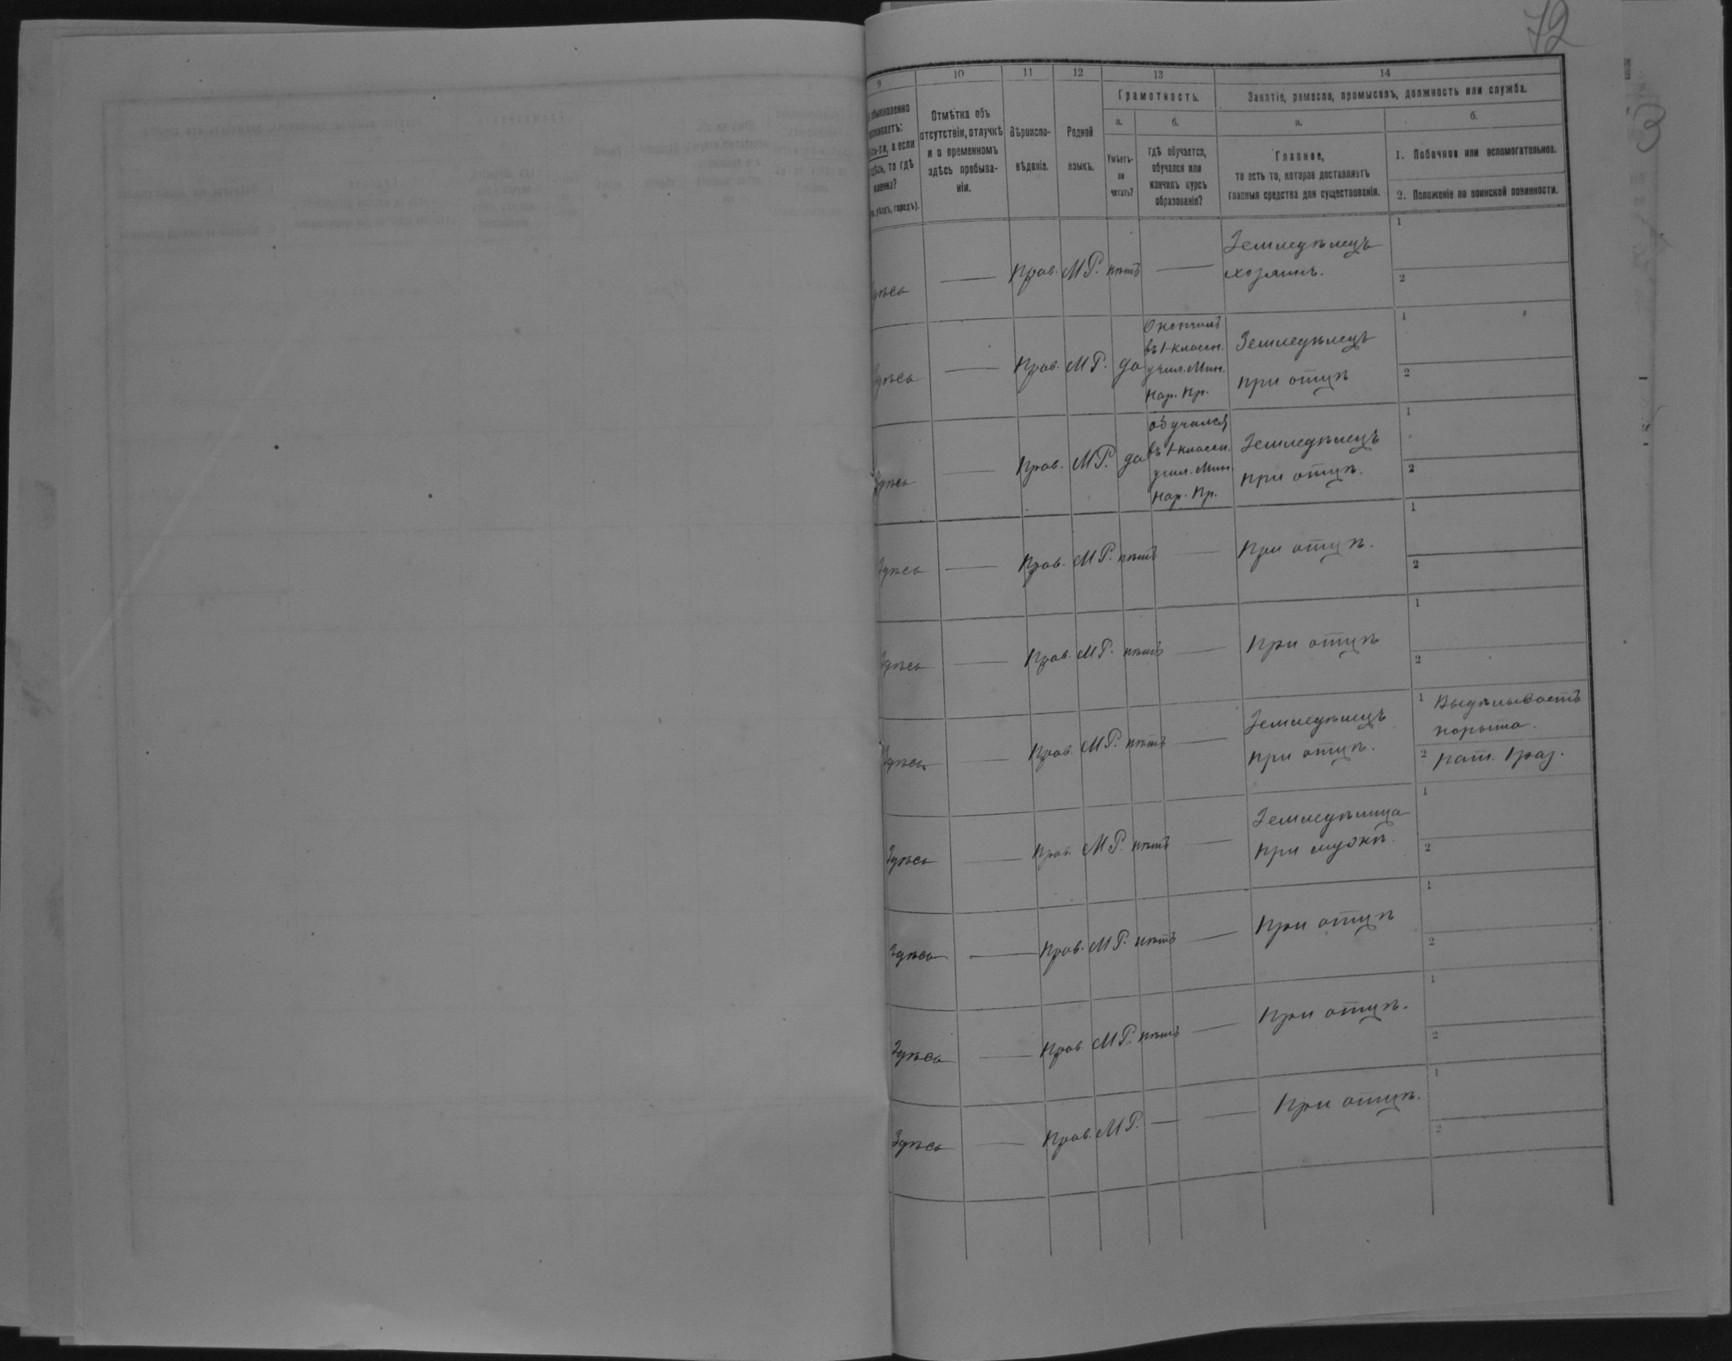 72
9 10 11 12 13 14
Грамотность.
Занятіе, ремесло, промыселъ, должность или служба.
Отмѣтка объ отсутствіи, отлучкѣ и о временномъ здѣсь пребываніи.
Вѣроисповѣданіе.
Родной языкъ.
а.
Умѣетъ-ли читать?
б.
Гдѣ обучается, обучался или кончилъ курсъ образованія?
а.
Главное,
то есть то, которое доставляетъ
главныя средства для существованія.
б.
1. Побочное или вспомогательное.
2. Положеніе по воинской повинности.
Здѣсь — Прав. М Р. нѣтъ — Земледѣлецъ
хозяинъ.
1
2
Здѣсь — Прав. М Р. да
Окончилъ
въ 1-классн.
учил. Мин.
Нар. Пр.
Земледѣлецъ
при отцѣ
1
2
Здѣсь — Прав. М Р. да
обучался
въ 1-классн.
учил. Мин.
Нар. Пр.
Земледѣлецъ
при отцѣ.
1
2
Здѣсь — Прав. М Р. нѣтъ — При отцѣ.
1
2
Здѣсь — Прав. М Р. нѣтъ — При отцѣ
1
2
Здѣсь — Прав. М Р. нѣтъ — Земледѣлецъ
при отцѣ.
1 Выдѣлываетъ
корыта.
2 Рат. 1 раз.
Здѣсь — Прав. М Р. нѣтъ — Земледѣлица
При мужѣ.
1
2
Здѣсь — Прав. М Р. нѣтъ — При отцѣ
1
2
Здѣсь — Прав. М Р. нѣтъ — При отцѣ.
1
2
Здѣсь — Прав. М Р. — — При отцѣ.
1
2